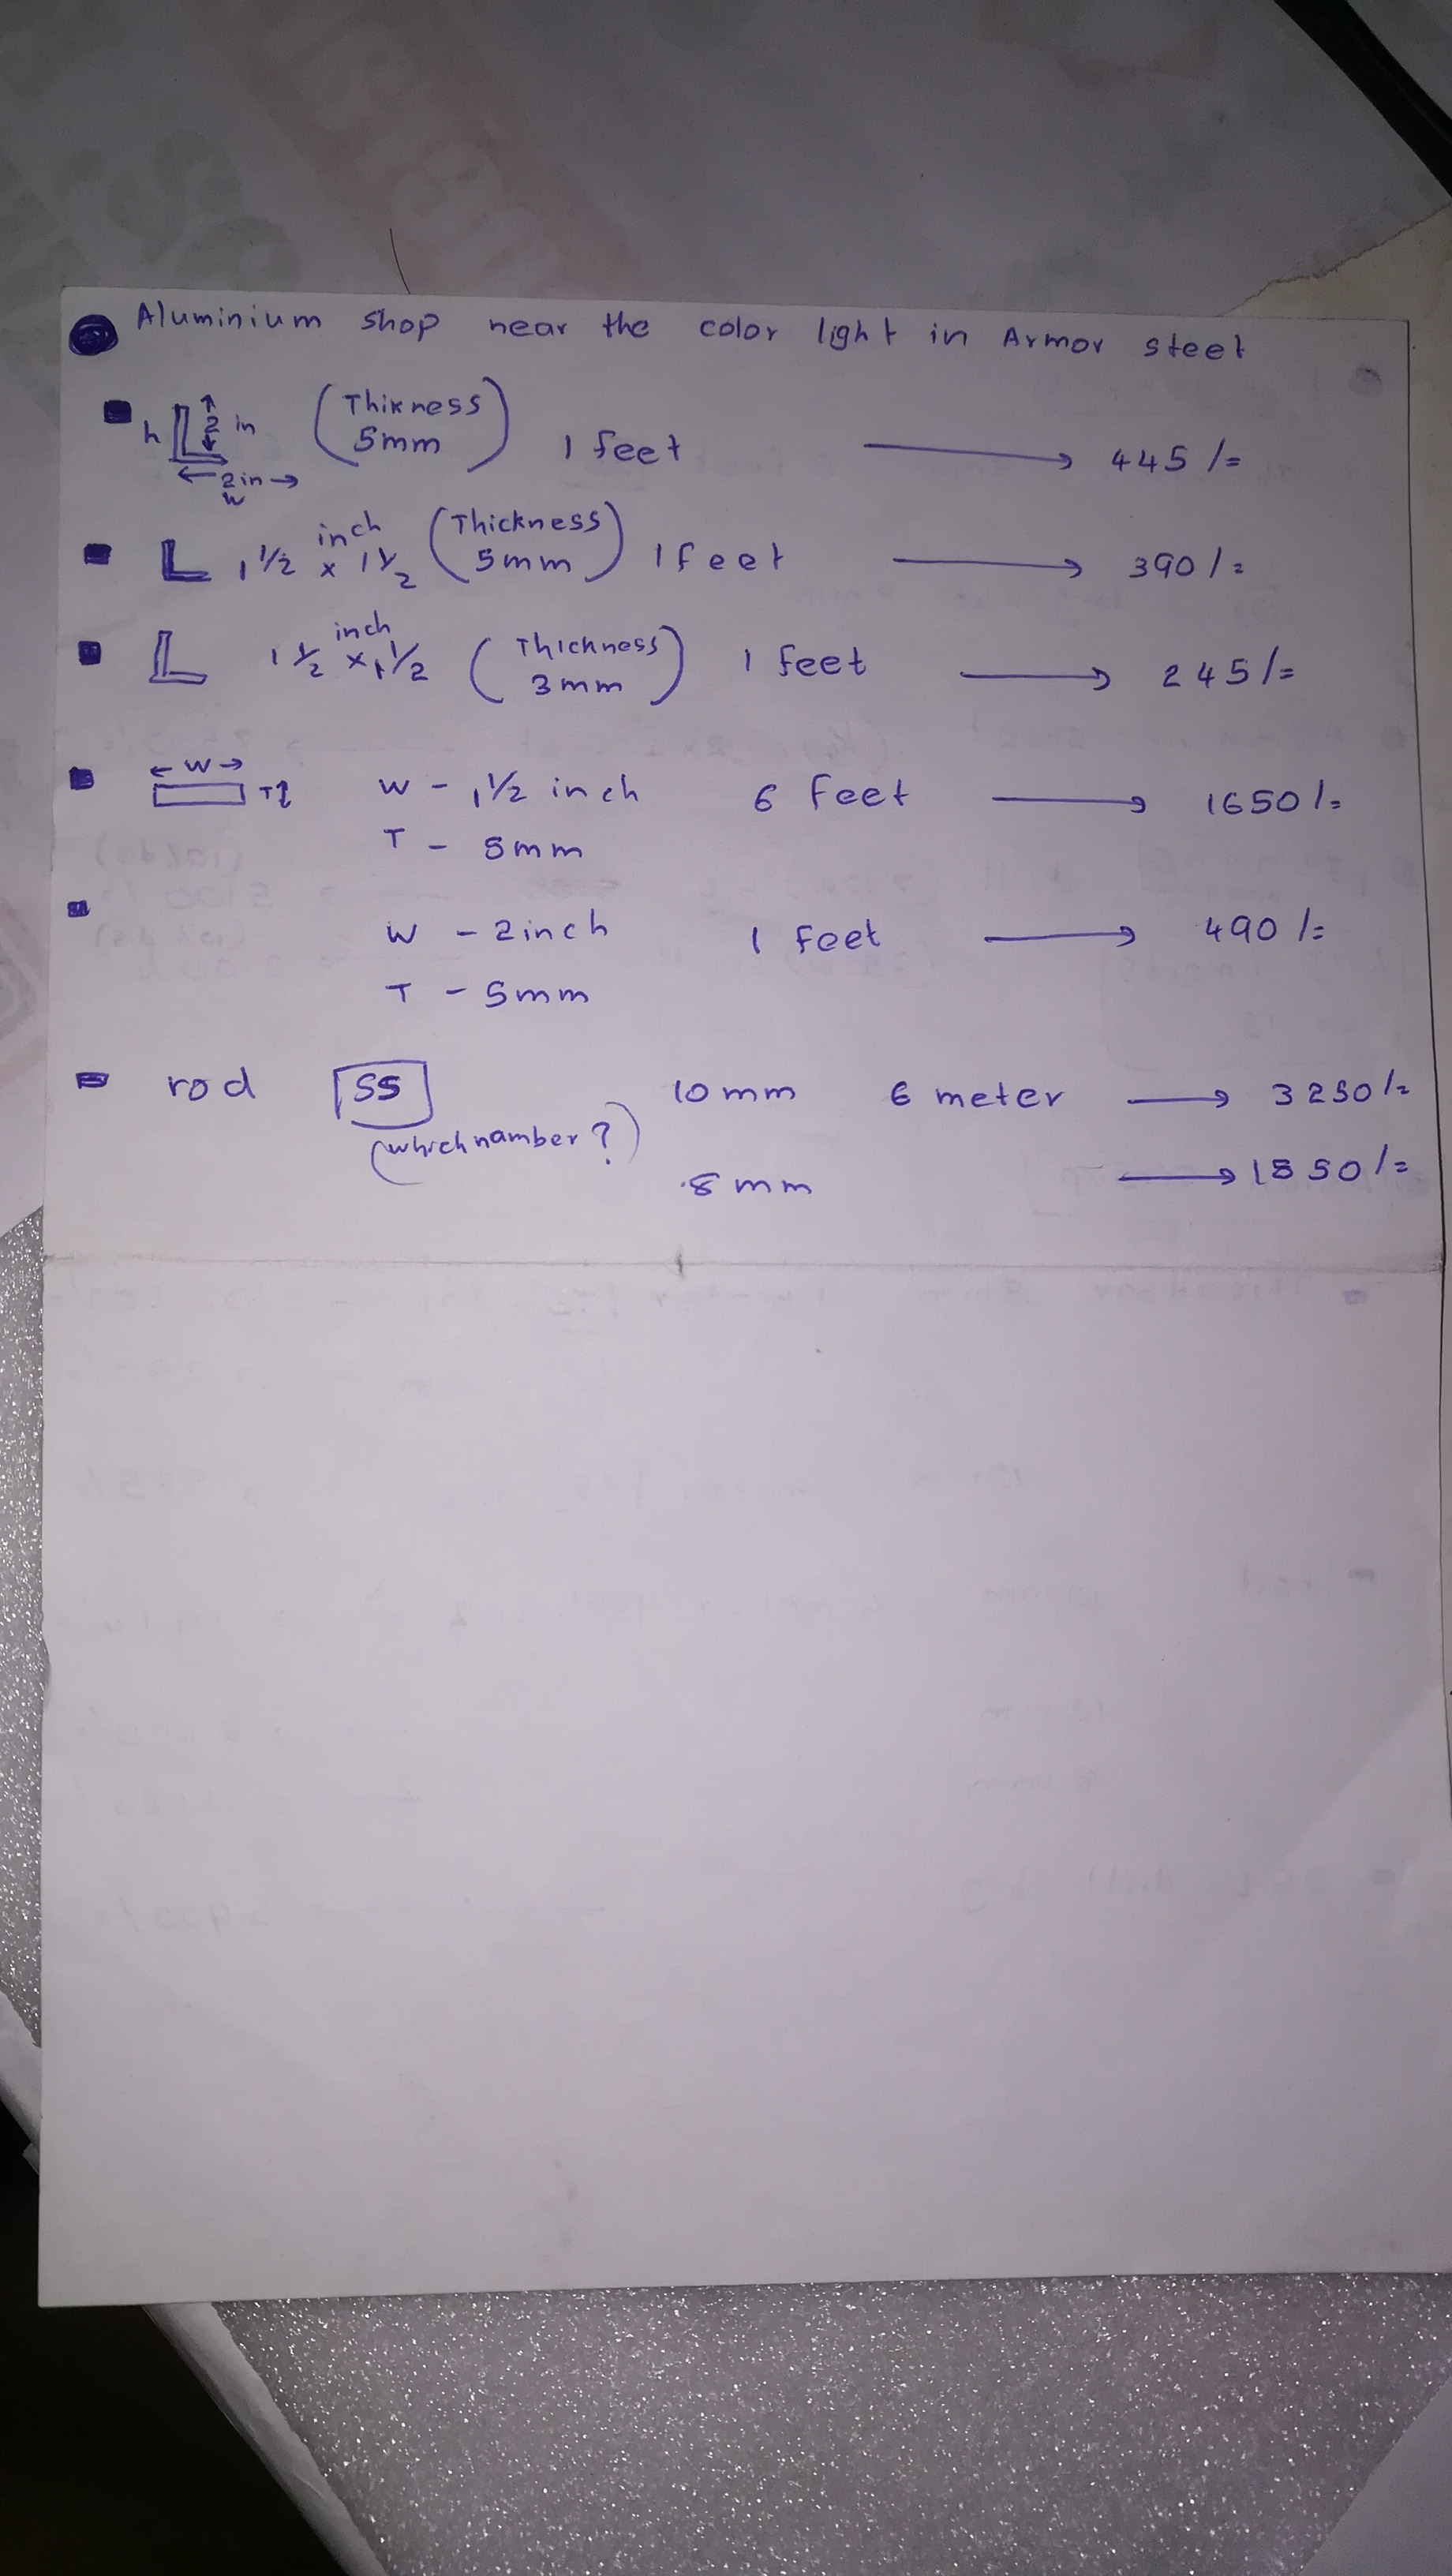 Aluminium shop near the color light in Armor steet
h 2 in (Thikness 5mm) 1 feet → 445/=
← 2in →
W
L 1 1/2 x 1 1/2 inch (Thickness 5mm) 1 feet → 390/=
L 1 1/2 x 1 1/2 inch (Thickness 3mm) 1 feet → 245/=
← W → T W - 1 1/2 inch 6 feet → 1650/=
T - 5mm
W - 2inch 1 feet → 490/=
T - 5mm
rod SS 10mm 6 meter → 3250/=
(which namber?)
8mm → 1850/=